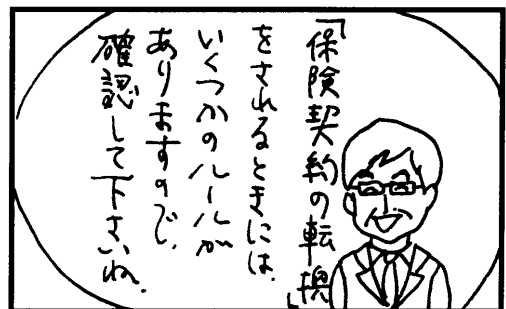 「保険契約の転換」
をされるときには、
いくつかのルールが
ありますので、
確認して下さいね.